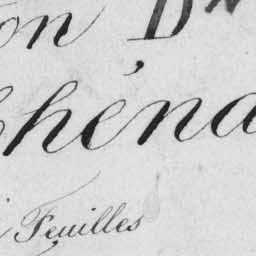 on Dn
héna
Feuilles